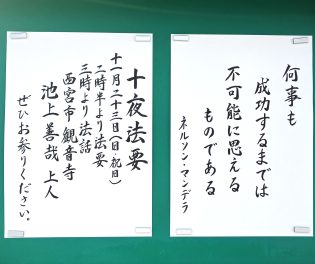 何事も
成功するまでは
不可能に思える
ものである
ネルソン・マンデラ
十夜法要
十一月二十三日(日・祝日)
二時半より法要
三時より法話
西宮市 観音寺
池上善哉 上人
ぜひお参りください。